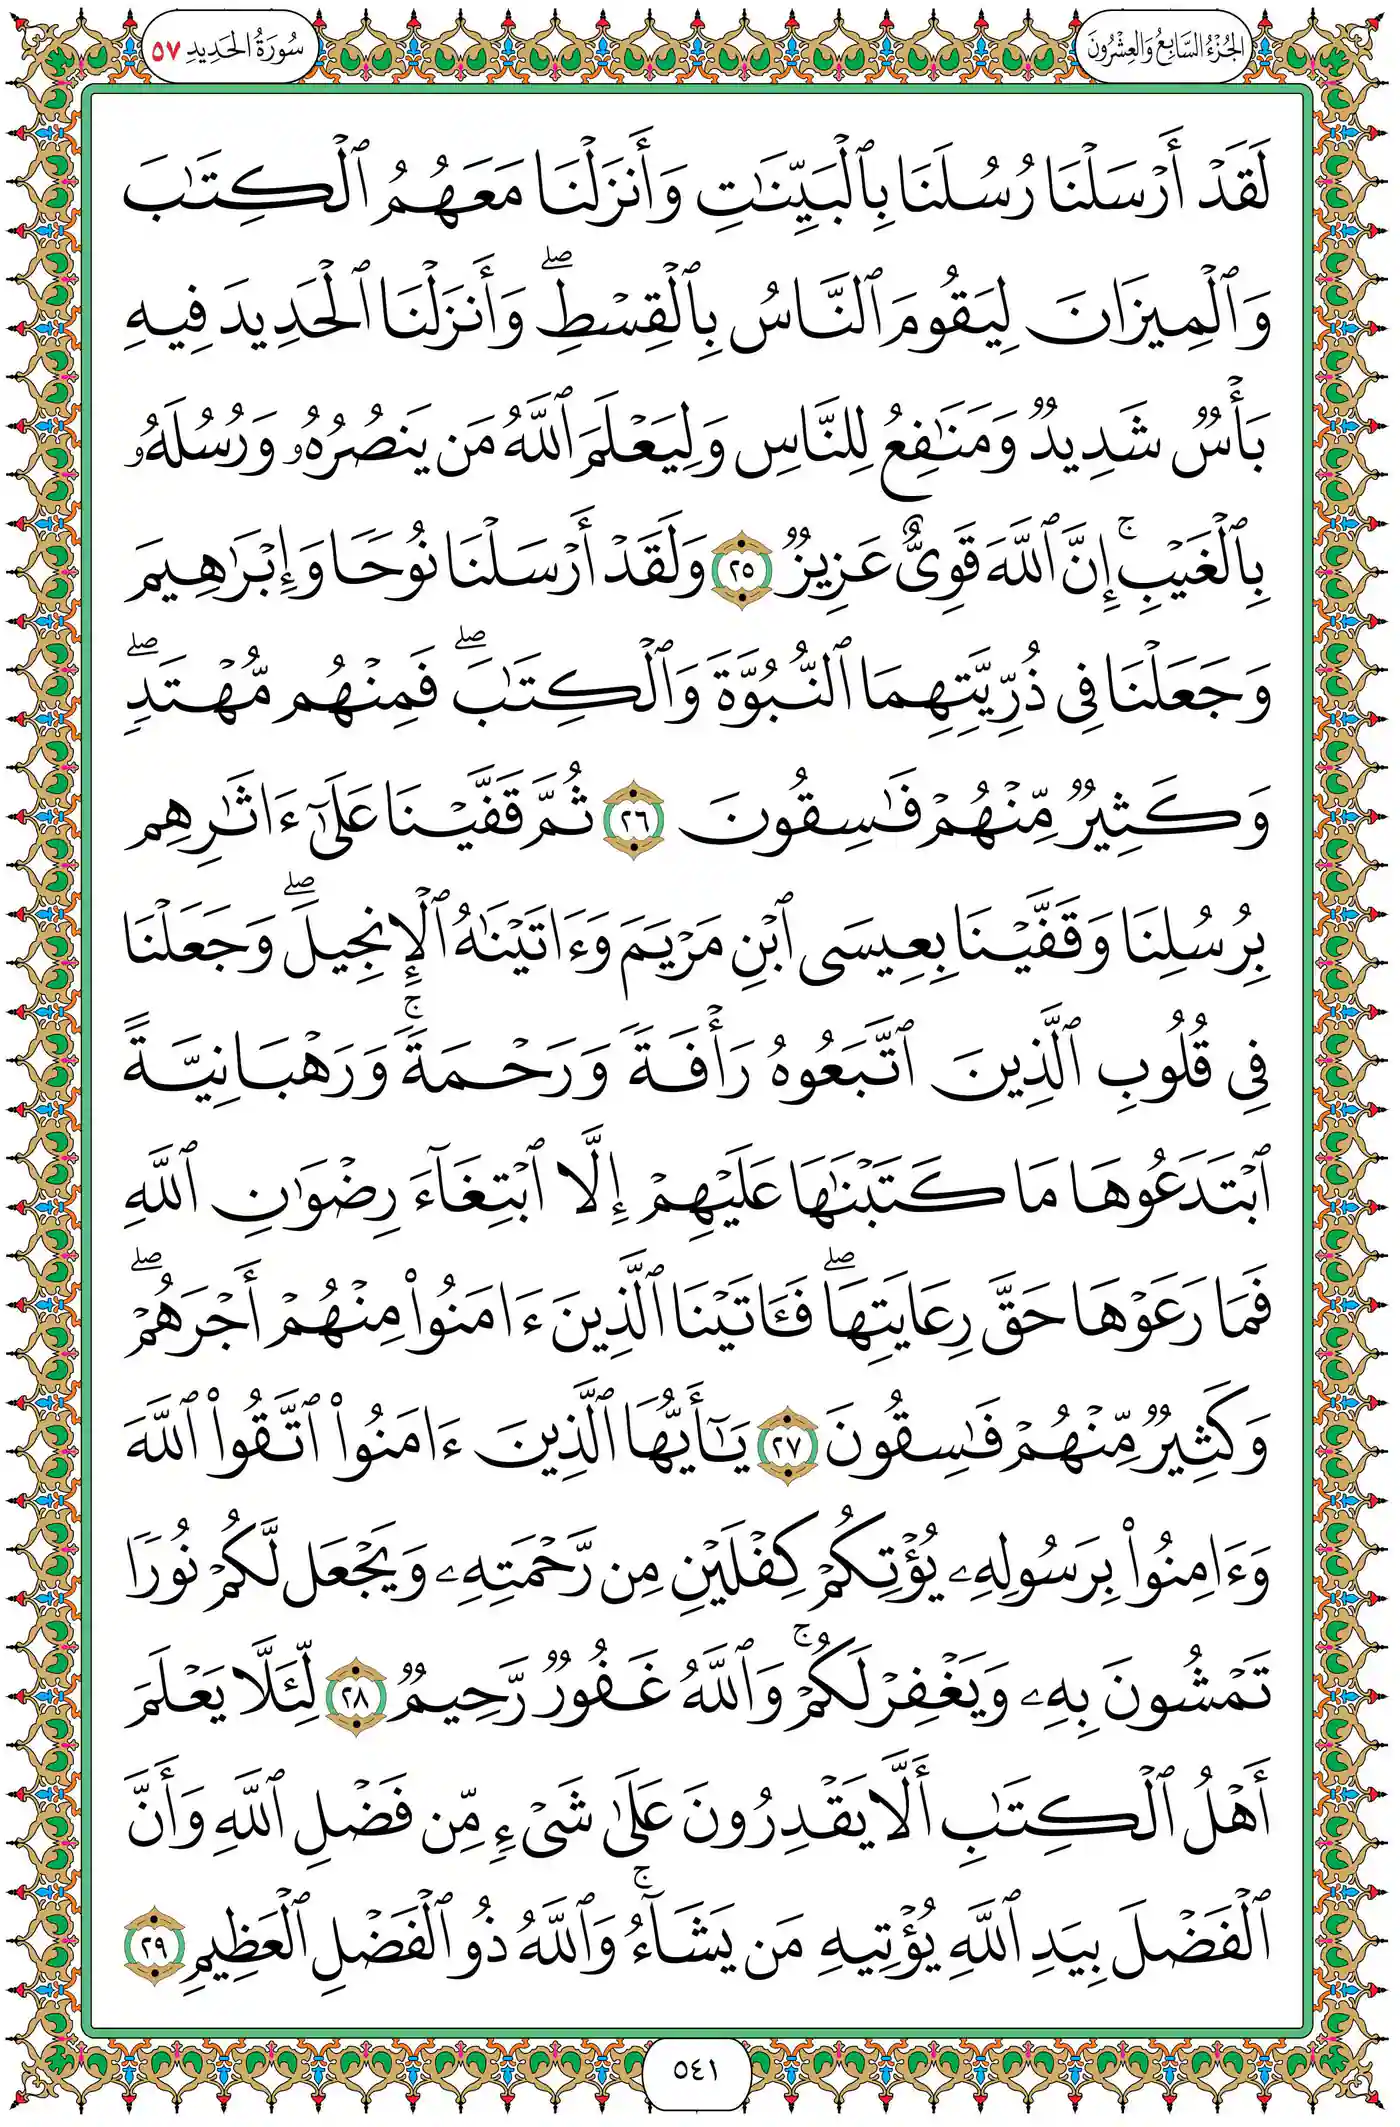 الجُزْءُ السَّابِعُ وَالعِشْرُونَ
سُورَةُ الحَدِيدِ ٥٧
لَقَدْ أَرْسَلْنَا رُسُلَنَا بِٱلْبَيِّنَٰتِ وَأَنزَلْنَا مَعَهُمُ ٱلْكِتَٰبَ
وَٱلْمِيزَانَ لِيَقُومَ ٱلنَّاسُ بِٱلْقِسْطِۖ وَأَنزَلْنَا ٱلْحَدِيدَ فِيهِ
بَأْسٌ شَدِيدٌ وَمَنَٰفِعُ لِلنَّاسِ وَلِيَعْلَمَ ٱللَّهُ مَن يَنصُرُهُۥ وَرُسُلَهُۥ
بِٱلْغَيْبِۚ إِنَّ ٱللَّهَ قَوِىٌّ عَزِيزٌ ٢٥ وَلَقَدْ أَرْسَلْنَا نُوحًا وَإِبْرَٰهِيمَ
وَجَعَلْنَا فِى ذُرِّيَّتِهِمَا ٱلنُّبُوَّةَ وَٱلْكِتَٰبَۖ فَمِنْهُم مُّهْتَدٍۖ
وَكَثِيرٌ مِّنْهُمْ فَٰسِقُونَ ٢٦ ثُمَّ قَفَّيْنَا عَلَىٰٓ ءَاثَٰرِهِم
بِرُسُلِنَا وَقَفَّيْنَا بِعِيسَى ٱبْنِ مَرْيَمَ وَءَاتَيْنَٰهُ ٱلْإِنجِيلَۖ وَجَعَلْنَا
فِى قُلُوبِ ٱلَّذِينَ ٱتَّبَعُوهُ رَأْفَةً وَرَحْمَةًۚ وَرَهْبَانِيَّةً
ٱبْتَدَعُوهَا مَا كَتَبْنَٰهَا عَلَيْهِمْ إِلَّا ٱبْتِغَآءَ رِضْوَٰنِ ٱللَّهِ
فَمَا رَعَوْهَا حَقَّ رِعَايَتِهَاۖ فَـَٔاتَيْنَا ٱلَّذِينَ ءَامَنُوا۟ مِنْهُمْ أَجْرَهُمْۖ
وَكَثِيرٌ مِّنْهُمْ فَٰسِقُونَ ٢٧ يَٰٓأَيُّهَا ٱلَّذِينَ ءَامَنُوا۟ ٱتَّقُوا۟ ٱللَّهَ
وَءَامِنُوا۟ بِرَسُولِهِۦ يُؤْتِكُمْ كِفْلَيْنِ مِن رَّحْمَتِهِۦ وَيَجْعَل لَّكُمْ نُورًا
تَمْشُونَ بِهِۦ وَيَغْفِرْ لَكُمْۚ وَٱللَّهُ غَفُورٌ رَّحِيمٌ ٢٨ لِّئَلَّا يَعْلَمَ
أَهْلُ ٱلْكِتَٰبِ أَلَّا يَقْدِرُونَ عَلَىٰ شَىْءٍ مِّن فَضْلِ ٱللَّهِ وَأَنَّ
ٱلْفَضْلَ بِيَدِ ٱللَّهِ يُؤْتِيهِ مَن يَشَآءُۚ وَٱللَّهُ ذُو ٱلْفَضْلِ ٱلْعَظِيمِ ٢٩
٥٤١